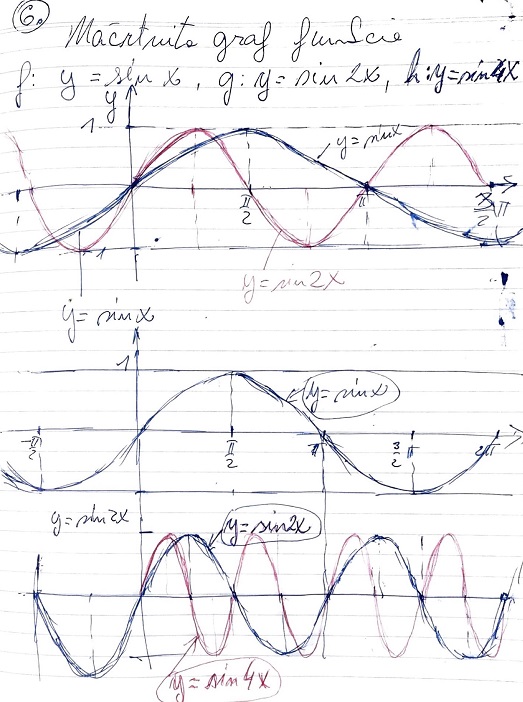 6.
Náčrtnite graf funkcie
f: y = sin x, g: y = sin 2x, h: y = sin 4x
y
1
y = sin x
π/2
π
3/2 π
-1
y = sin 2x
y = sin x
1
y = sin x
-π/2
π/2
π
3/2 π
2π
y = sin 2x
y = sin 2x
y = sin 4x